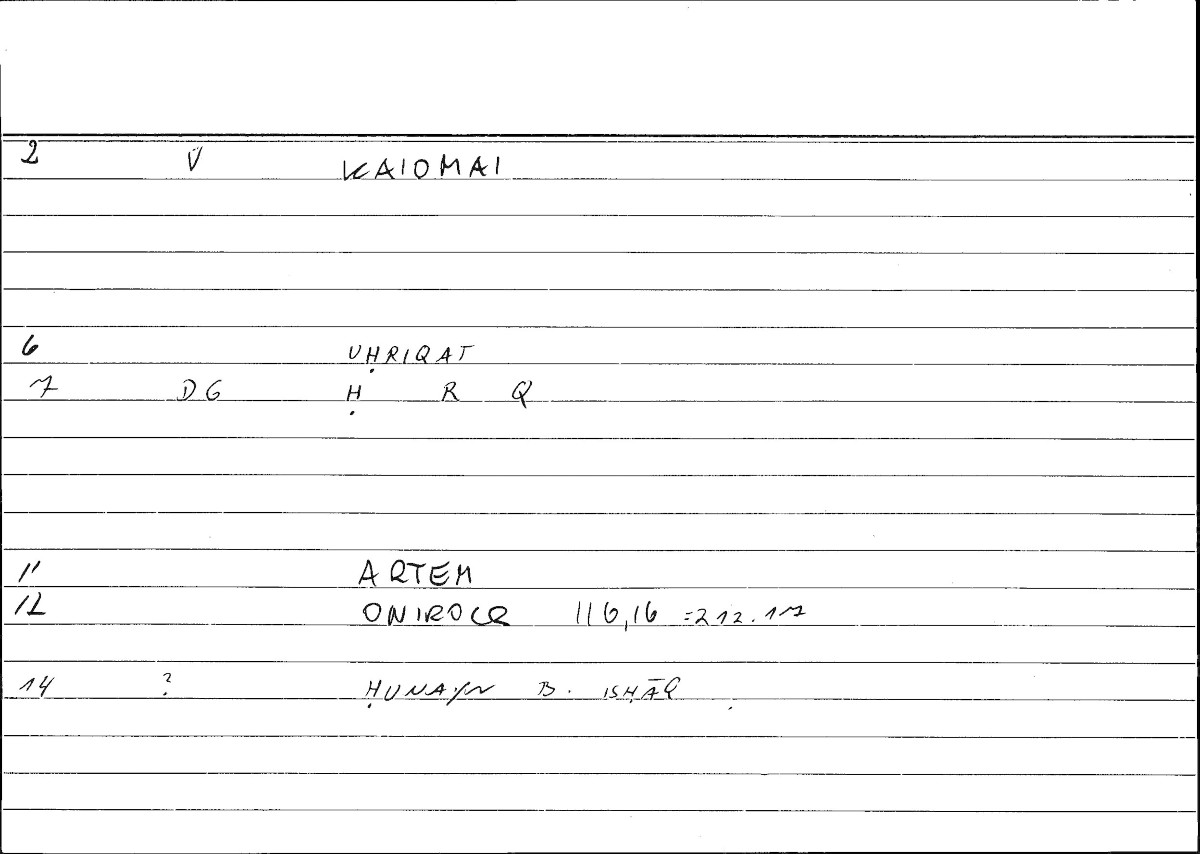 2 V KAIOMAI
6 UḤRIQAT
7 DG Ḥ R Q
11 ARTEM
12 ONIROCR 116,16 =212.17
14 ? ḤUNAYN B. ISḤĀQ